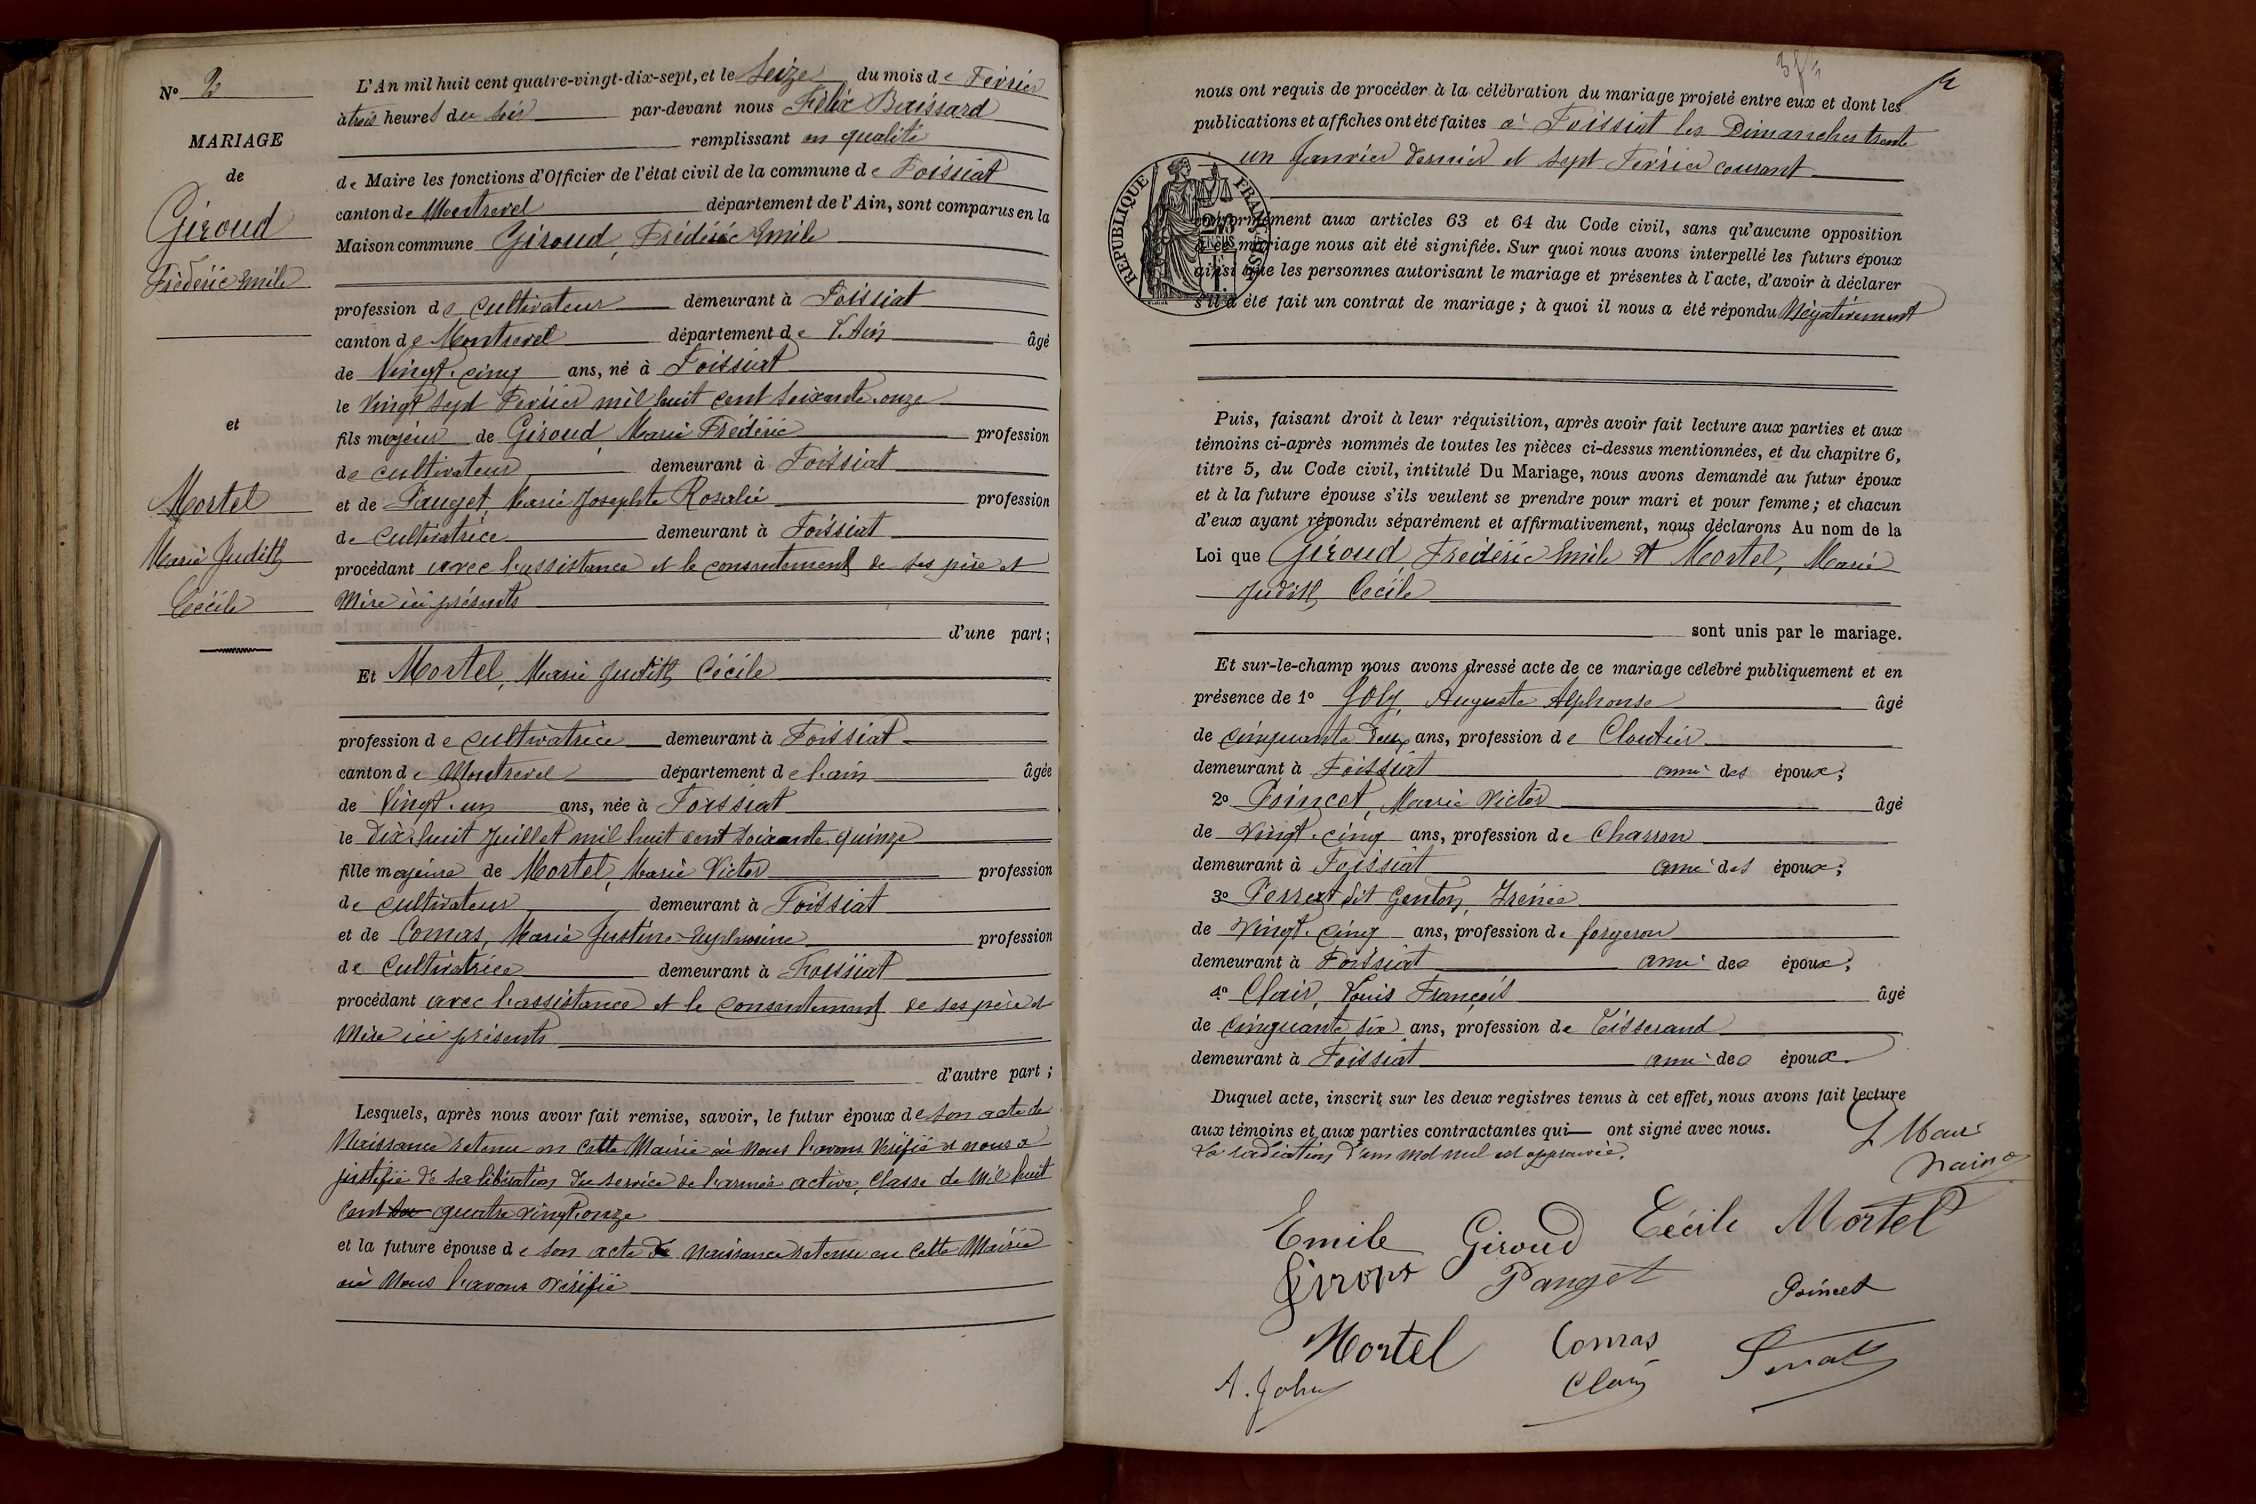 N° 2
MARIAGE
de
Giroud
Frédéric Emile
et
Mortel
Marie Judith
Cécile
L'An mil huit cent quatre-vingt-dix-sept, et le Seize du mois de Février
à trois heures du soir par-devant nous Félix Buissard
remplissant en qualité
de Maire les fonctions d'Officier de l'état civil de la commune de Foissiat
canton de Montrevel département de l'Ain, sont comparus en la
Maison commune Giroud, Frédéric Emile
profession de cultivateur demeurant à Foissiat
canton de Montrevel département de l'Ain âgé
de Vingt-cinq ans, né à Foissiat
le Vingt sept Février mil huit cent soixante-onze
fils majeur de Giroud, Marie Frédéric profession
de cultivateur demeurant à Foissiat
et de Pauget, Marie Josephte Rosalie profession
de cultivatrice demeurant à Foissiat
procédant avec l'assistance et le consentement de ses père et
Mère ici présents
d'une part;
Et Mortel, Marie Judith Cécile
profession de cultivatrice demeurant à Foissiat
canton de Montrevel département de l'ain âgée
de Vingt-un ans, née à Foissiat
le dix-huit Juillet mil huit cent soixante-quinze
fille majeure de Mortel, Marie Victor profession
de cultivateur demeurant à Foissiat
et de Comas, Marie Justine Euphrosine profession
de Cultivatrice demeurant à Foissiat
procédant avec l'assistance et le consentement de ses père et
Mère ici présents
d'autre part;
Lesquels, après nous avoir fait remise, savoir, le futur époux de son acte de
Naissance retenu en cette Mairie où Nous l'avons Vérifié et nous a
justifié de sa libération du service de l'armée active, Classe de Mil huit
Cent quatre vingt onze
et la future épouse de son acte de Naissance retenu en cette Mairie
où Nous l'avons Vérifié
nous ont requis de procéder à la célébration du mariage projeté entre eux et dont les
publications et affiches ont été faites à Foissiat les Dimanches trente
un Janvier dernier et sept Février courant
RÉPUBLIQUE FRANÇAISE
conformément aux articles 63 et 64 du Code civil, sans qu'aucune opposition
à ce mariage nous ait été signifiée. Sur quoi nous avons interpellé les futurs époux
ainsi que les personnes autorisant le mariage et présentes à l'acte, d'avoir à déclarer
s'il a été fait un contrat de mariage; à quoi il nous a été répondu Négativement
Puis, faisant droit à leur réquisition, après avoir fait lecture aux parties et aux
témoins ci-après nommés de toutes les pièces ci-dessus mentionnées, et du chapitre 6,
titre 5, du Code civil, intitulé Du Mariage, nous avons demandé au futur époux
et à la future épouse s'ils veulent se prendre pour mari et pour femme; et chacun
d'eux ayant répondu séparément et affirmativement, nous déclarons Au nom de la
Loi que Giroud, Frédéric Emile et Mortel, Marie
Judith Cécile
sont unis par le mariage.
Et sur-le-champ nous avons dressé acte de ce mariage célébré publiquement et en
présence de 1° Joly, Auguste Alphonse âgé
de cinquante deux ans, profession de Cloutier
demeurant à Foissiat ami des époux;
2° Poincet, Marie Victor âgé
de Vingt-cinq ans, profession de Charron
demeurant à Foissiat ami des époux;
3° Perret dit Genton, Irénée
de Vingt-cinq ans, profession de forgeron
demeurant à Foissiat ami des époux;
4° Clair, Louis François âgé
de Cinquante six ans, profession de Tisserand
demeurant à Foissiat ami des époux.
Duquel acte, inscrit sur les deux registres tenus à cet effet, nous avons fait lecture
aux témoins et aux parties contractantes qui ont signé avec nous.
La radiation d'un mot nul est approuvée.
Emile Giroud Cécile Mortel
Pauget
Poincet
Mortel Comas
A. Joly Clair